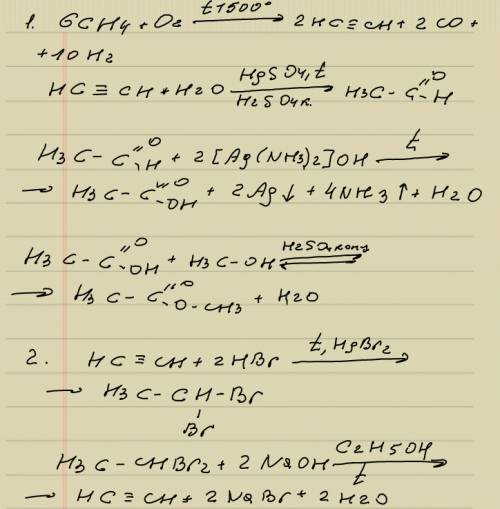 1. 6CH4 + O2 t1500° → 2HC≡CH + 2CO +
+ 10H2
HC≡CH + H2O HgSO4, t / H2SO4 к. → H3C-C(=O)-H
H3C-C(=O)-H + 2[Ag(NH3)2]OH t →
→ H3C-C(=O)-OH + 2Ag↓ + 4NH3↑ + H2O
H3C-C(=O)-OH + H3C-OH H2SO4 конц ⇌
→ H3C-C(=O)-O-CH3 + H2O
2. HC≡CH + 2HBr t, HgBr2 →
→ H3C-CH-Br
Br
H3C-CHBr2 + 2NaOH C2H5OH / t →
→ HC≡CH + 2NaBr + 2H2O